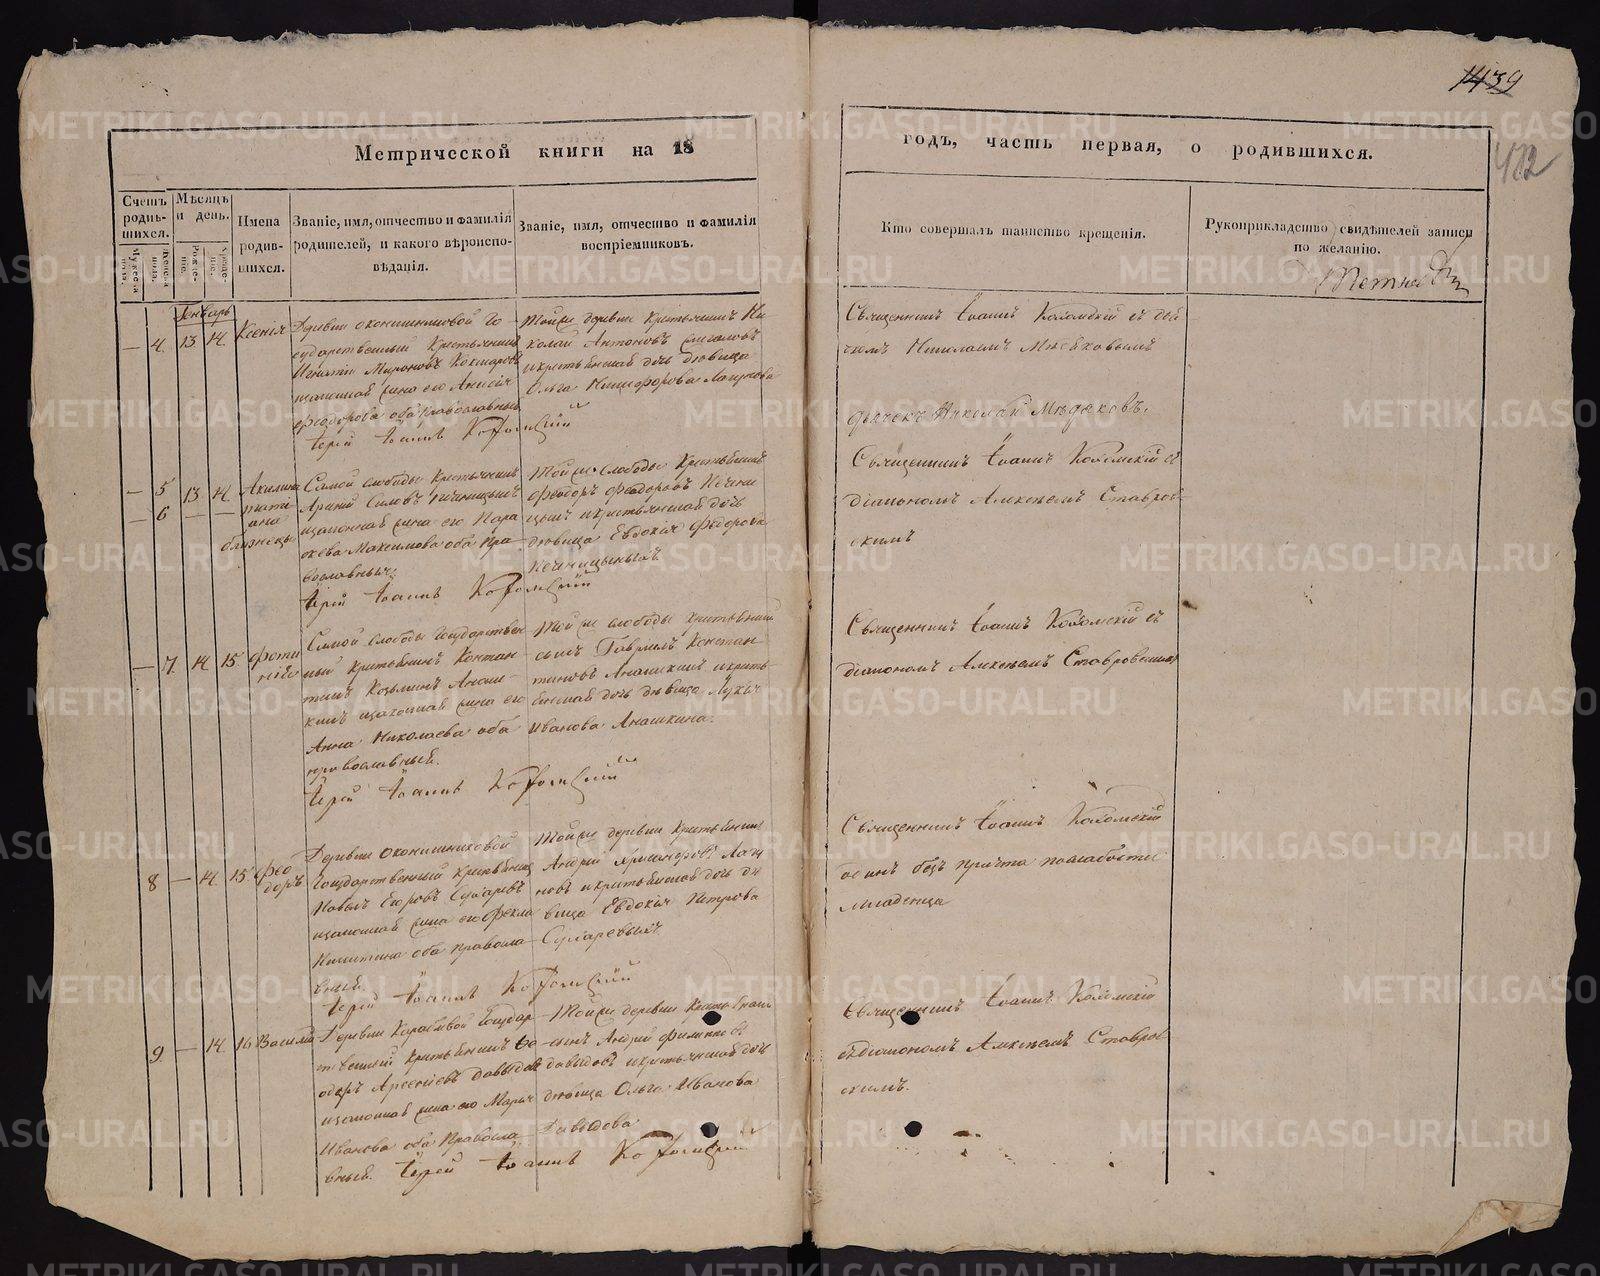 1439
482
Метрической книги на 18
годъ, часть первая, о родившихся.
Счетъ родив-шихся.
Мужеска пола.
Женска пола.
Мѣсяцъ и день.
Рожде-нія.
Креще-нія.
Имена родив-шихся.
Званіе, имя, отчество и фамилія родителей, и какого вѣроиспо-вѣданія.
Званіе, имя, отчество и фамилія воспріемниковъ.
Кто совершалъ таинство крещенія.
Рукоприкладство свидѣтелей записи по желанію.
Генварь
— 4. 13 14. Ксенія
Деревни Оконишниковой Го-
сударственный крестьянинъ
Игнатій Мироновъ
законная жена его Анисія
Феодорова оба православные
Іерей Іоаннъ Коломскій
Той же деревни крестьянинъ Ни-
колай Антоновъ
и крестьянская дочь дѣвица
Ольга Никифорова Лагунова
Священникъ Іоаннъ Коломскій съ дья-
чкомъ Николаемъ
дьячекъ Николай
— 5 13 14. Акилина
— 6 — — Татіана
близнецы
Самой слободы крестьянинъ
законная жена его Пара
скева Максимова оба пра-
вославные
Іерей Іоаннъ Коломскій
Той же слободы крестьянинъ
Феодоръ Феодоровъ
и крестьянская дочь
дѣвица Евдокія Федорова
Священникъ Іоаннъ Коломскій съ
діакономъ Алексѣемъ Ставров-
скимъ
— 7. 14 15 Фотинія
Самой слободы государствен
ный крестьянинъ Констан-
тинъ Козьминъ Анаш-
кинъ законная жена его
Анна Николаева оба
православные.
Іерей Іоаннъ Коломскій
Той же слободы крестьянинъ
Гавріилъ Констан-
тиновъ Анашкинъ и кресть-
янская дочь дѣвица
Иванова Анашкина.
Священникъ Іоаннъ Коломскій съ
діакономъ Алексѣемъ Ставровскимъ
8 — 14. 15 Фео
доръ
Деревни Оконишниковой
государственный крестьянинъ
Павелъ Егоровъ Сухаревъ
законная жена его Фекла
Никитина оба правосла-
вные.
Іерей Іоаннъ Коломскій
Той же деревни крестьянинъ
Андрей Лагу
новъ и крестьянская дочь дѣ
вица Евдокія Петрова
Сухаревыхъ
Священникъ Іоаннъ Коломскій
одинъ безъ причта по слабости
младенца
9. — 14. 16 Василій
Деревни Государ-
ственный крестьянинъ Фе-
одоръ Арсеніевъ Давыдовъ
законная жена его Марья
Иванова оба правосла-
вные. Іерей Іоаннъ Коломскій
Той же деревни крестьяни-
нъ Андрей
Давыдовъ и крестьянская дочь
дѣвица Ольга Иванова
Давыдова
Священникъ Іоаннъ Коломскій
съ діакономъ Алексѣемъ Ставров
скимъ.
METRIKI.GASO-URAL.RU